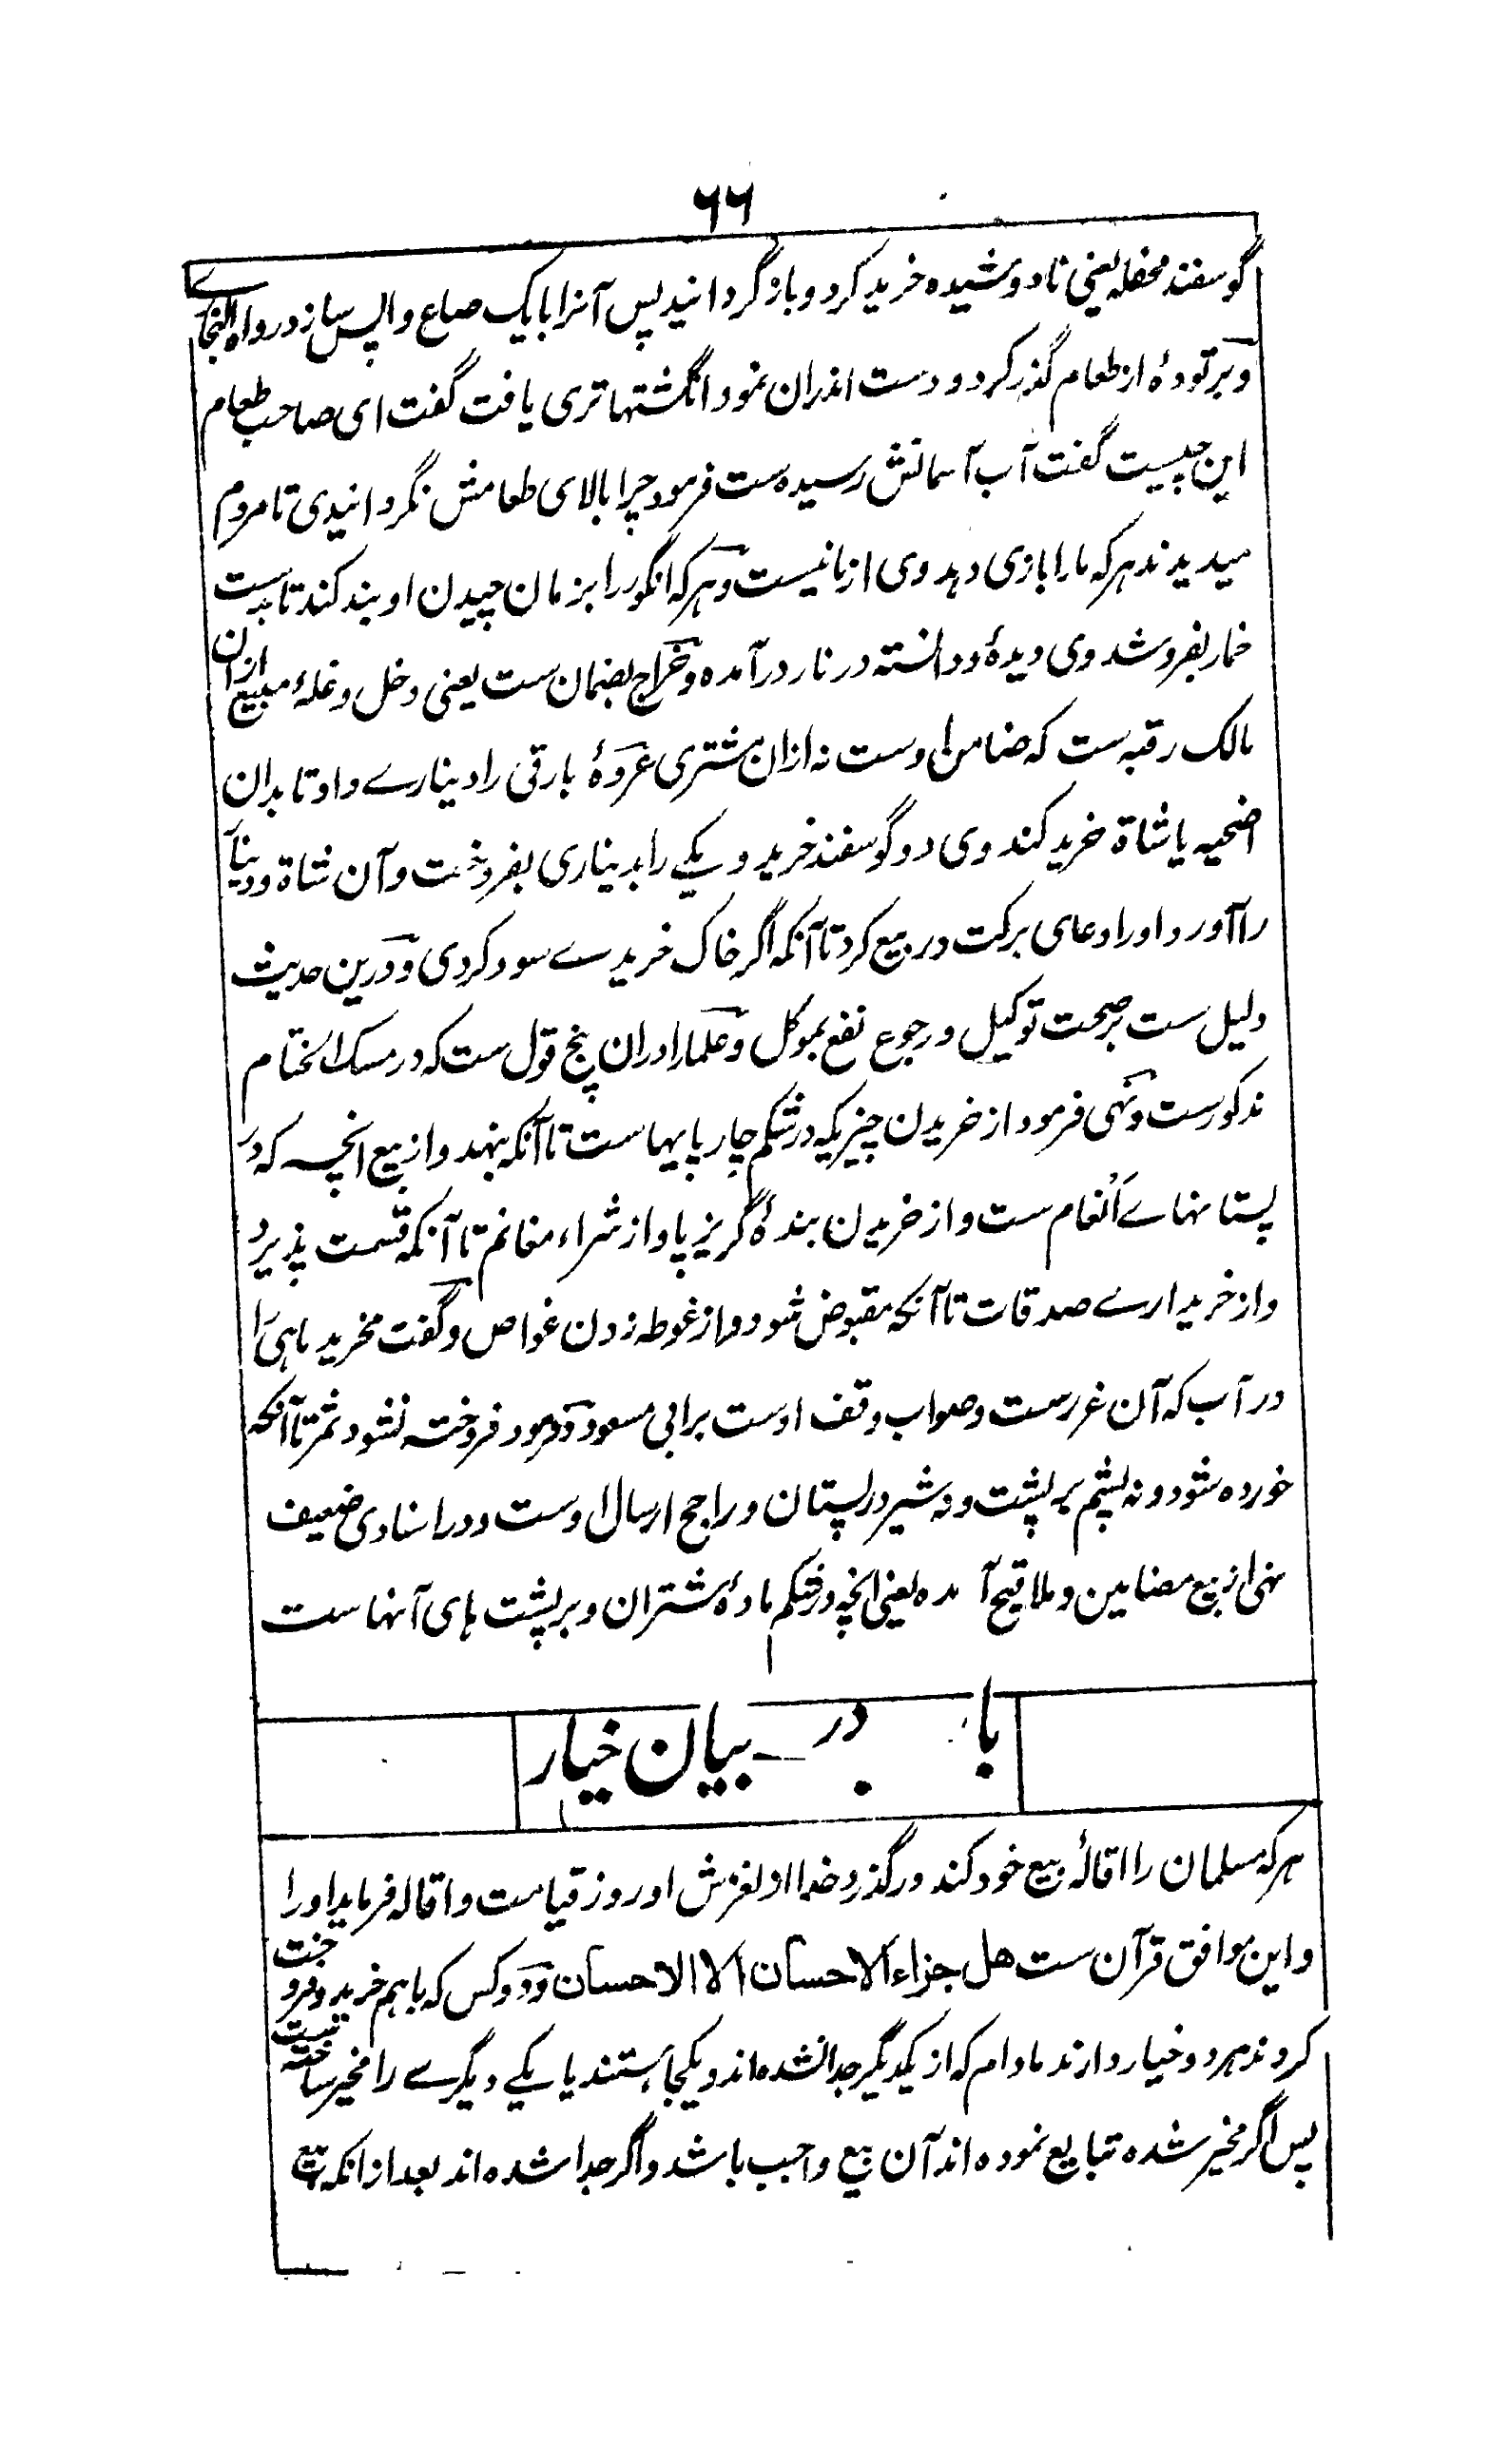 ۶۶
گوسفند محفله یعنی نادوشیده خرید کرد و بازگردانید پس آنرا با یک صاع واپس سازد رواه البخاری
و بر تودۀ از طعام گذر کرد و دست اندران نمود انگشتها تری یافت گفت ای صاحب طعام
این چیست گفت آب آسمانش رسیده ست فرمود چرا بالای طعامش نگردانیدی تا مردم
میدیدند هر که ما را بازی دهد وی از ما نیست و هر که انگور را بزمان چیدن او بند کند تا بدست
خمار بفروشد وی دیده و دانسته در نار درآمده و خراج بضمان ست یعنی دخل و غلۀ مبیع ازان
مالک رقبه ست که ضامن اوست نه ازان مشتری عروۀ بارقی را دینارے داد تا بدان
اضحیه یا شاة خرید کند وی دو گوسفند خرید و یکے را بدیناری بفروخت و آن شاة و دینار
را آورد او را دعای برکت در بیع کرد تا آنکه اگر خاک خریدے سود کردی و درین حدیث
دلیل ست بر صحت توکیل و رجوع نفع بموکل و علما را دران پنج قول ست که در مسک الختام
مذکورست و نهی فرمود از خریدن چیزیکه در شکم چارپایهاست تا آنکه بنهد و از بیع انچه که در
پستانهاے انعام ست و از خریدن بندۀ گریزپا و از شراء مغانم تا آنکه قسمت پذیرد
و از خریدارے صدقات تا آنکه مقبوض شود و از غوطه زدن غواص و گفت مخرید ماهی را
در آب که آن غررست و صواب وقف اوست بر ابی مسعود و فرمود فروخته نشود ثمر تا آنکه
خورده شود و نه پشم بر پشت و نه شیر در پستان و راجح ارسال اوست و در اسنادی ضعیف
نهی از بیع مضامین و ملاقیح آمده یعنی انچه در شکم مادۀ شتران و بر پشت های آنهاست
باب در بیان خیار
هر که مسلمان را اقالۀ بیع خود کند درگذرد خدا از لغزش او روز قیامت و اقاله فرماید او را
و این موافق قرآن ست هل جزاء الاحسان الا الاحسان و دو کس که باهم خرید و فروخت
کردند هر دو خیار دارند مادام که از یکدیگر جدا نشده اند و یکجا هستند یا یکے دیگرے را مخیر ساخته نیست
پس اگر مخیر شده تبایع نموده اند آن بیع واجب باشد و اگر جدا شده اند بعد ازانکه بیع